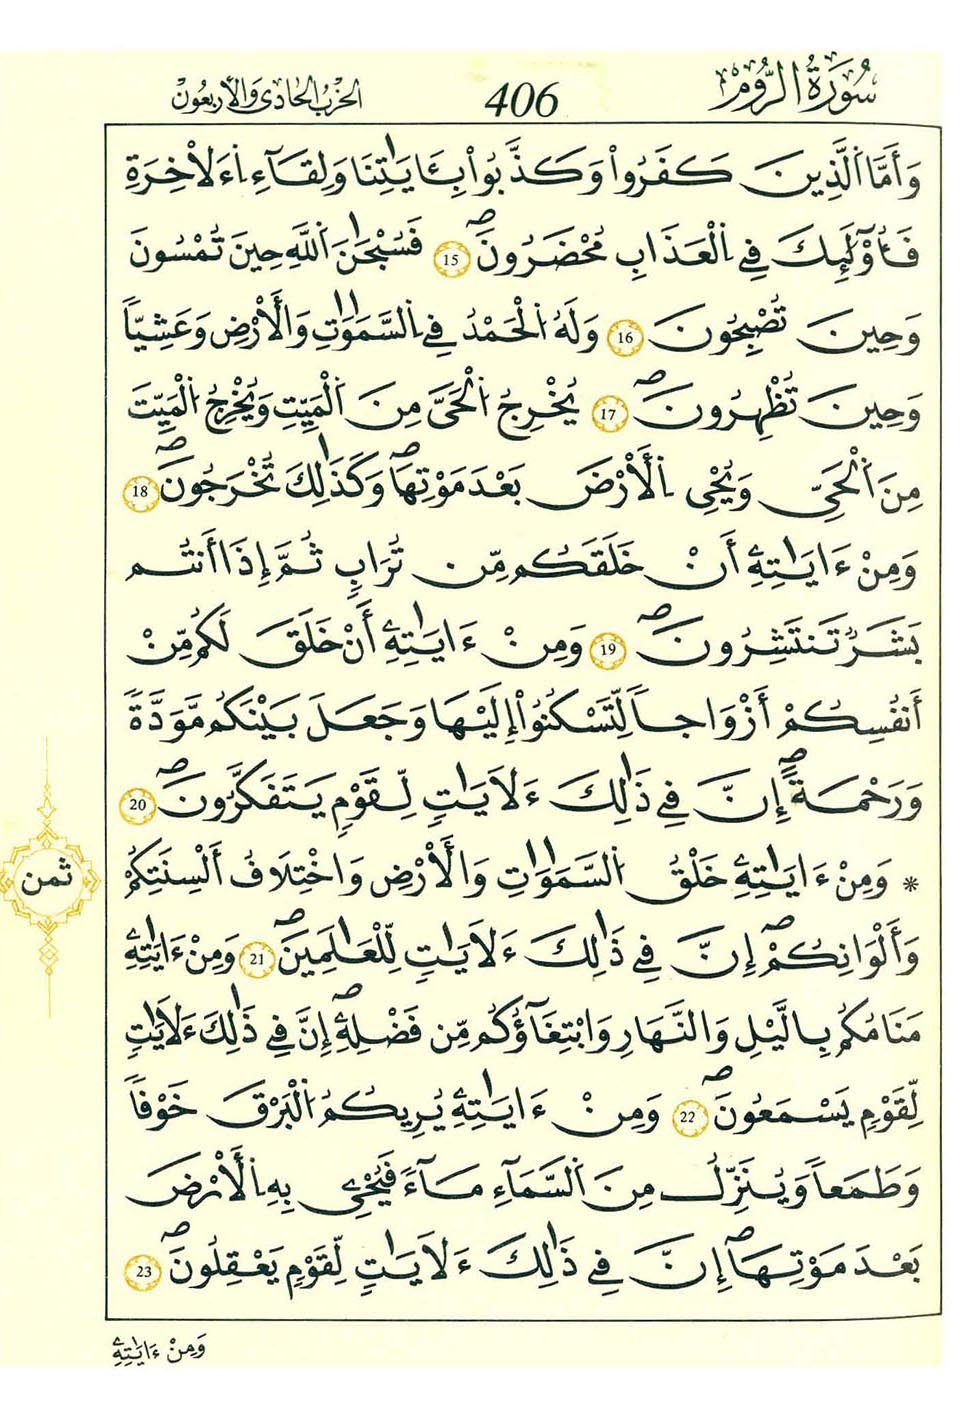 سُورَةُ الرُّومِ
406
الحِزْبُ الحَادِي وَالأَرْبَعُونَ
وَأَمَّا اَ۬لذِينَ كَفَرُواْ وَكَذَّبُواْ بِـَٔايَٰتِنَا وَلِقَآءِ اِ۬ءَلَاخِرَةِ
فَأُوْلَٰٓئِكَ فِے اِ۬لْعَذَابِ مُحْضَرُونَۖ 15 فَسُبْحَٰنَ اَ۬للَّهِ حِينَ تُمْسُونَ
وَحِينَ تُصْبِحُونَ 16 وَلَهُ اُ۬لْحَمْدُ فِے اِ۬لسَّمَٰوَٰتِ وَالْأَرْضِ وَعَشِيّاً
وَحِينَ تُظْهِرُونَۖ 17 يُخْرِجُ اُ۬لْحَيَّ مِنَ اَ۬لْمَيِّتِ وَيُخْرِجُ اُ۬لْمَيِّتَ
مِنَ اَ۬لْحَيِّ وَيُحْيِ اِ۬لْأَرْضَ بَعْدَ مَوْتِهَاۖ وَكَذَٰلِكَ تُخْرَجُونَۖ 18
وَمِنْ ءَايَٰتِهِۦٓ أَنْ خَلَقَكُم مِّن تُرَابٍ ثُمَّ إِذَا أَنتُم
بَشَرٌ تَنتَشِرُونَۖ 19 وَمِنْ ءَايَٰتِهِۦٓ أَنْ خَلَقَ لَكُم مِّنْ
أَنفُسِكُمْ أَزْوَاجاً لِّتَسْكُنُواْ إِلَيْهَا وَجَعَلَ بَيْنَكُم مَّوَدَّةً
وَرَحْمَةًۖ إِنَّ فِے ذَٰلِكَ ءَلَايَٰتٍ لِّقَوْمٍ يَتَفَكَّرُونَۖ 20
* وَمِنْ ءَايَٰتِهِۦ خَلْقُ اُ۬لسَّمَٰوَٰتِ وَالْأَرْضِ وَاخْتِلَافُ أَلْسِنَتِكُمْ
وَأَلْوَانِكُمْۖ إِنَّ فِے ذَٰلِكَ ءَلَايَٰتٍ لِّلْعَٰلَمِينَۖ 21 وَمِنْ ءَايَٰتِهِۦ
مَنَامُكُم بِالَّيْلِ وَالنَّهَارِ وَابْتِغَآؤُكُم مِّن فَضْلِهِۦٓۖ إِنَّ فِے ذَٰلِكَ ءَلَايَٰتٍ
لِّقَوْمٍ يَسْمَعُونَۖ 22 وَمِنْ ءَايَٰتِهِۦ يُرِيكُمُ اُ۬لْبَرْقَ خَوْفاً
وَطَمَعاً وَيُنَزِّلُ مِنَ اَ۬لسَّمَآءِ مَآءً فَيُحْيِۦ بِهِ اِ۬لْأَرْضَ
بَعْدَ مَوْتِهَاۖ إِنَّ فِے ذَٰلِكَ ءَلَايَٰتٍ لِّقَوْمٍ يَعْقِلُونَۖ 23
ثمن
وَمِنْ ءَايَٰتِهِۦٓ